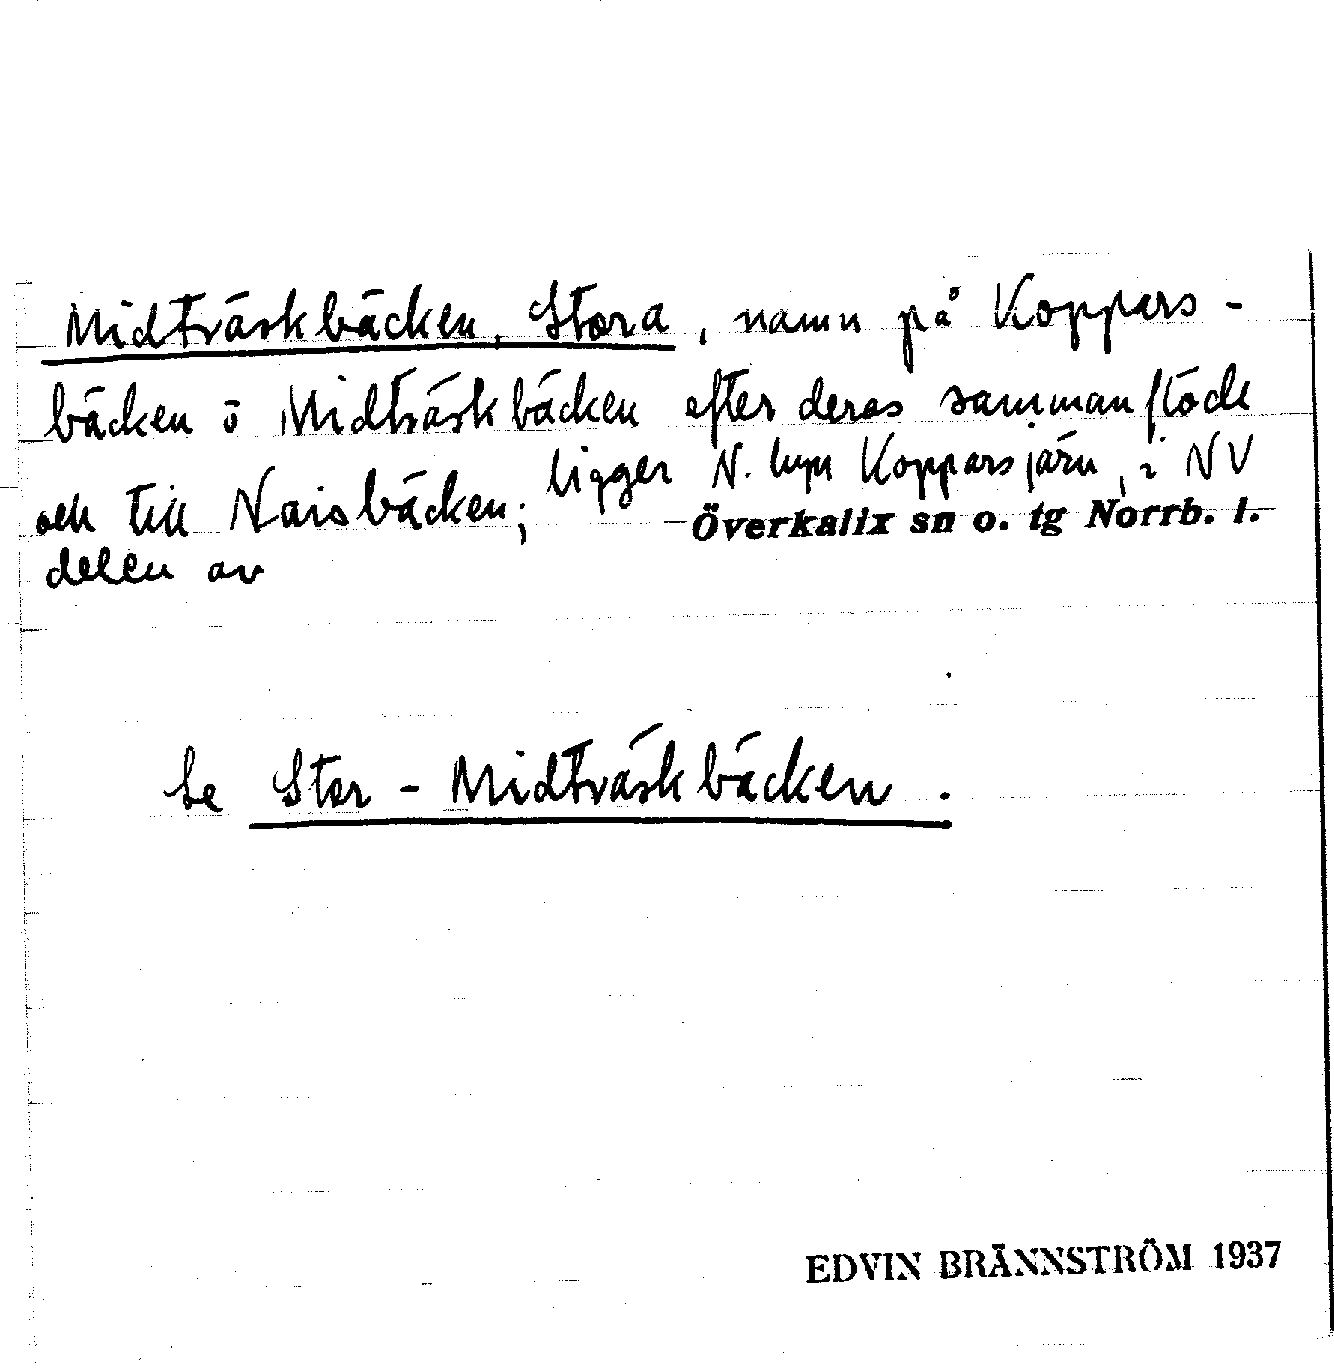 Midträskbäcken, Stora, namn på Koppars-
bäcken o Midträskbäcken efter deras sammanflöde
och till Naisbäcken; ligger N. lugn Kopparsjärn, i NV
delen av Överkalix sn o. tg Norrb. l.
Se Stor-Midträskbäcken.
EDVIN BRÄNNSTRÖM 1937